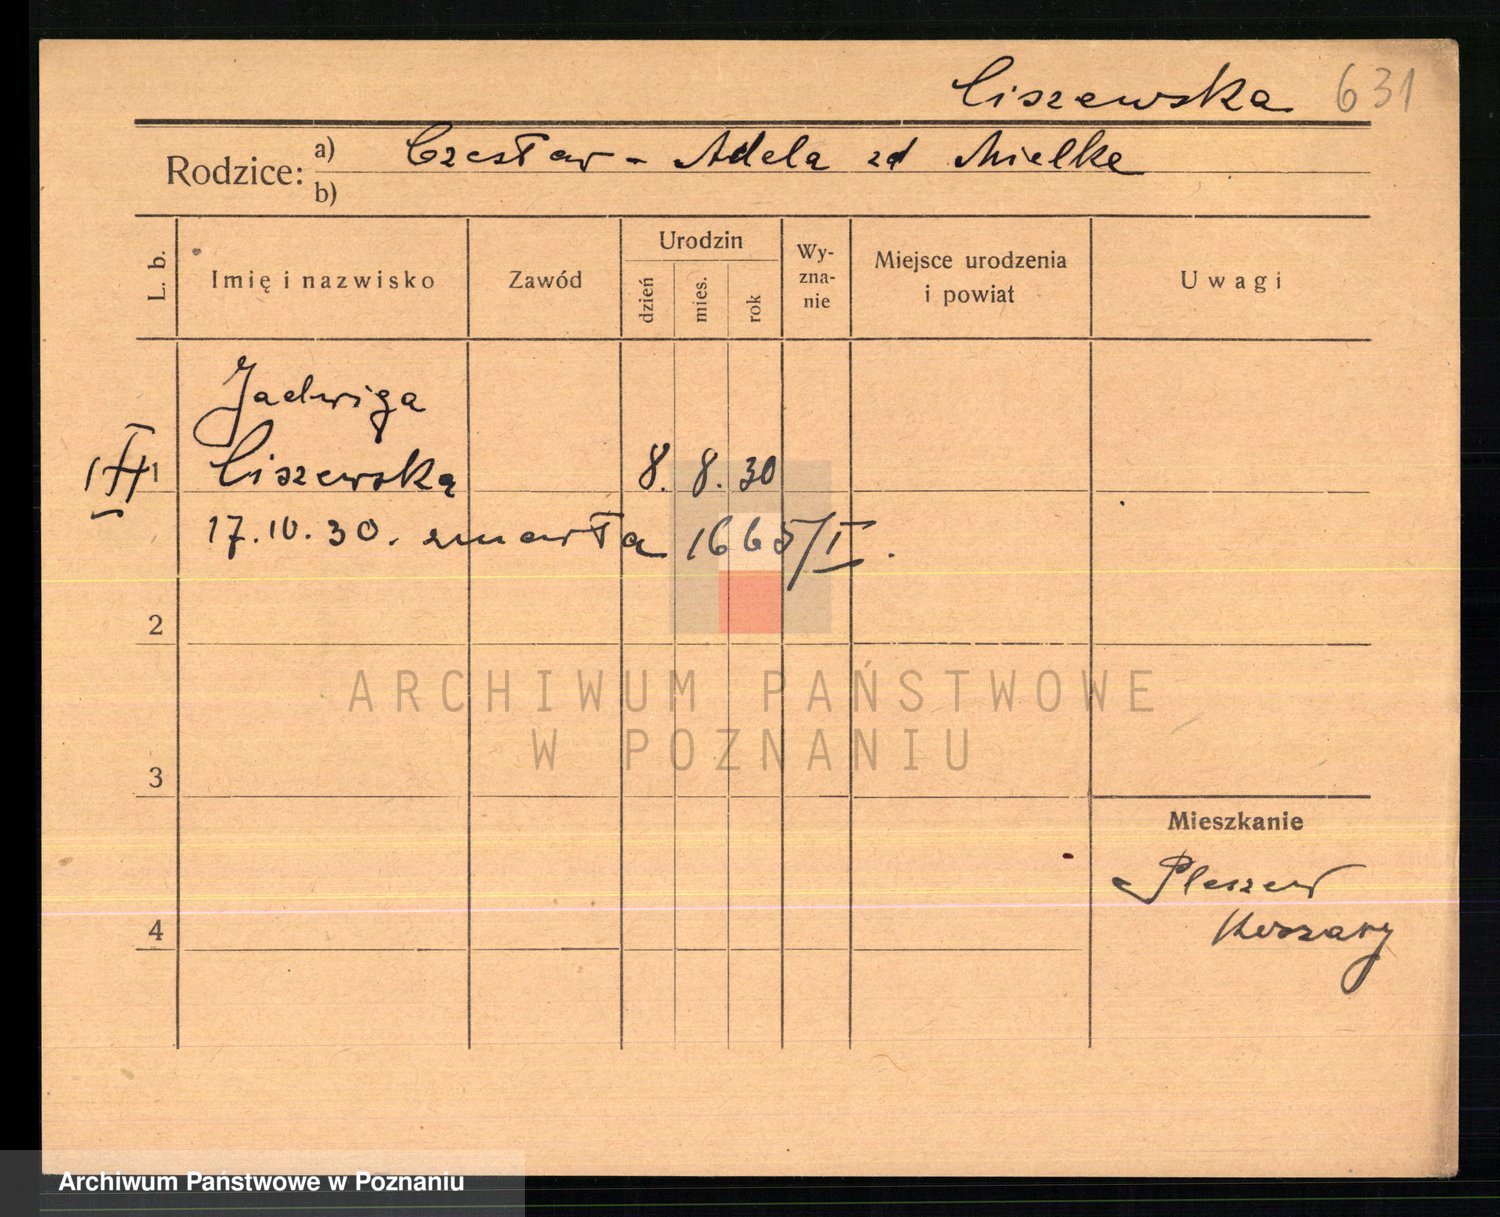 Ciszewska 631
Rodzice: a) Czesław - Adela zd Mielke
b)
L. b. Imię i nazwisko Zawód Urodzin dzień mies. rok Wyznanie Miejsce urodzenia i powiat Uwagi
Jadwiga
1 Ciszewska 8. 8. 30
17.10.30. zmarła 1665/I.
2
ARCHIWUM PAŃSTWOWE
W POZNANIU
3
Mieszkanie
Pleszew
4 Koszary
Archiwum Państwowe w Poznaniu